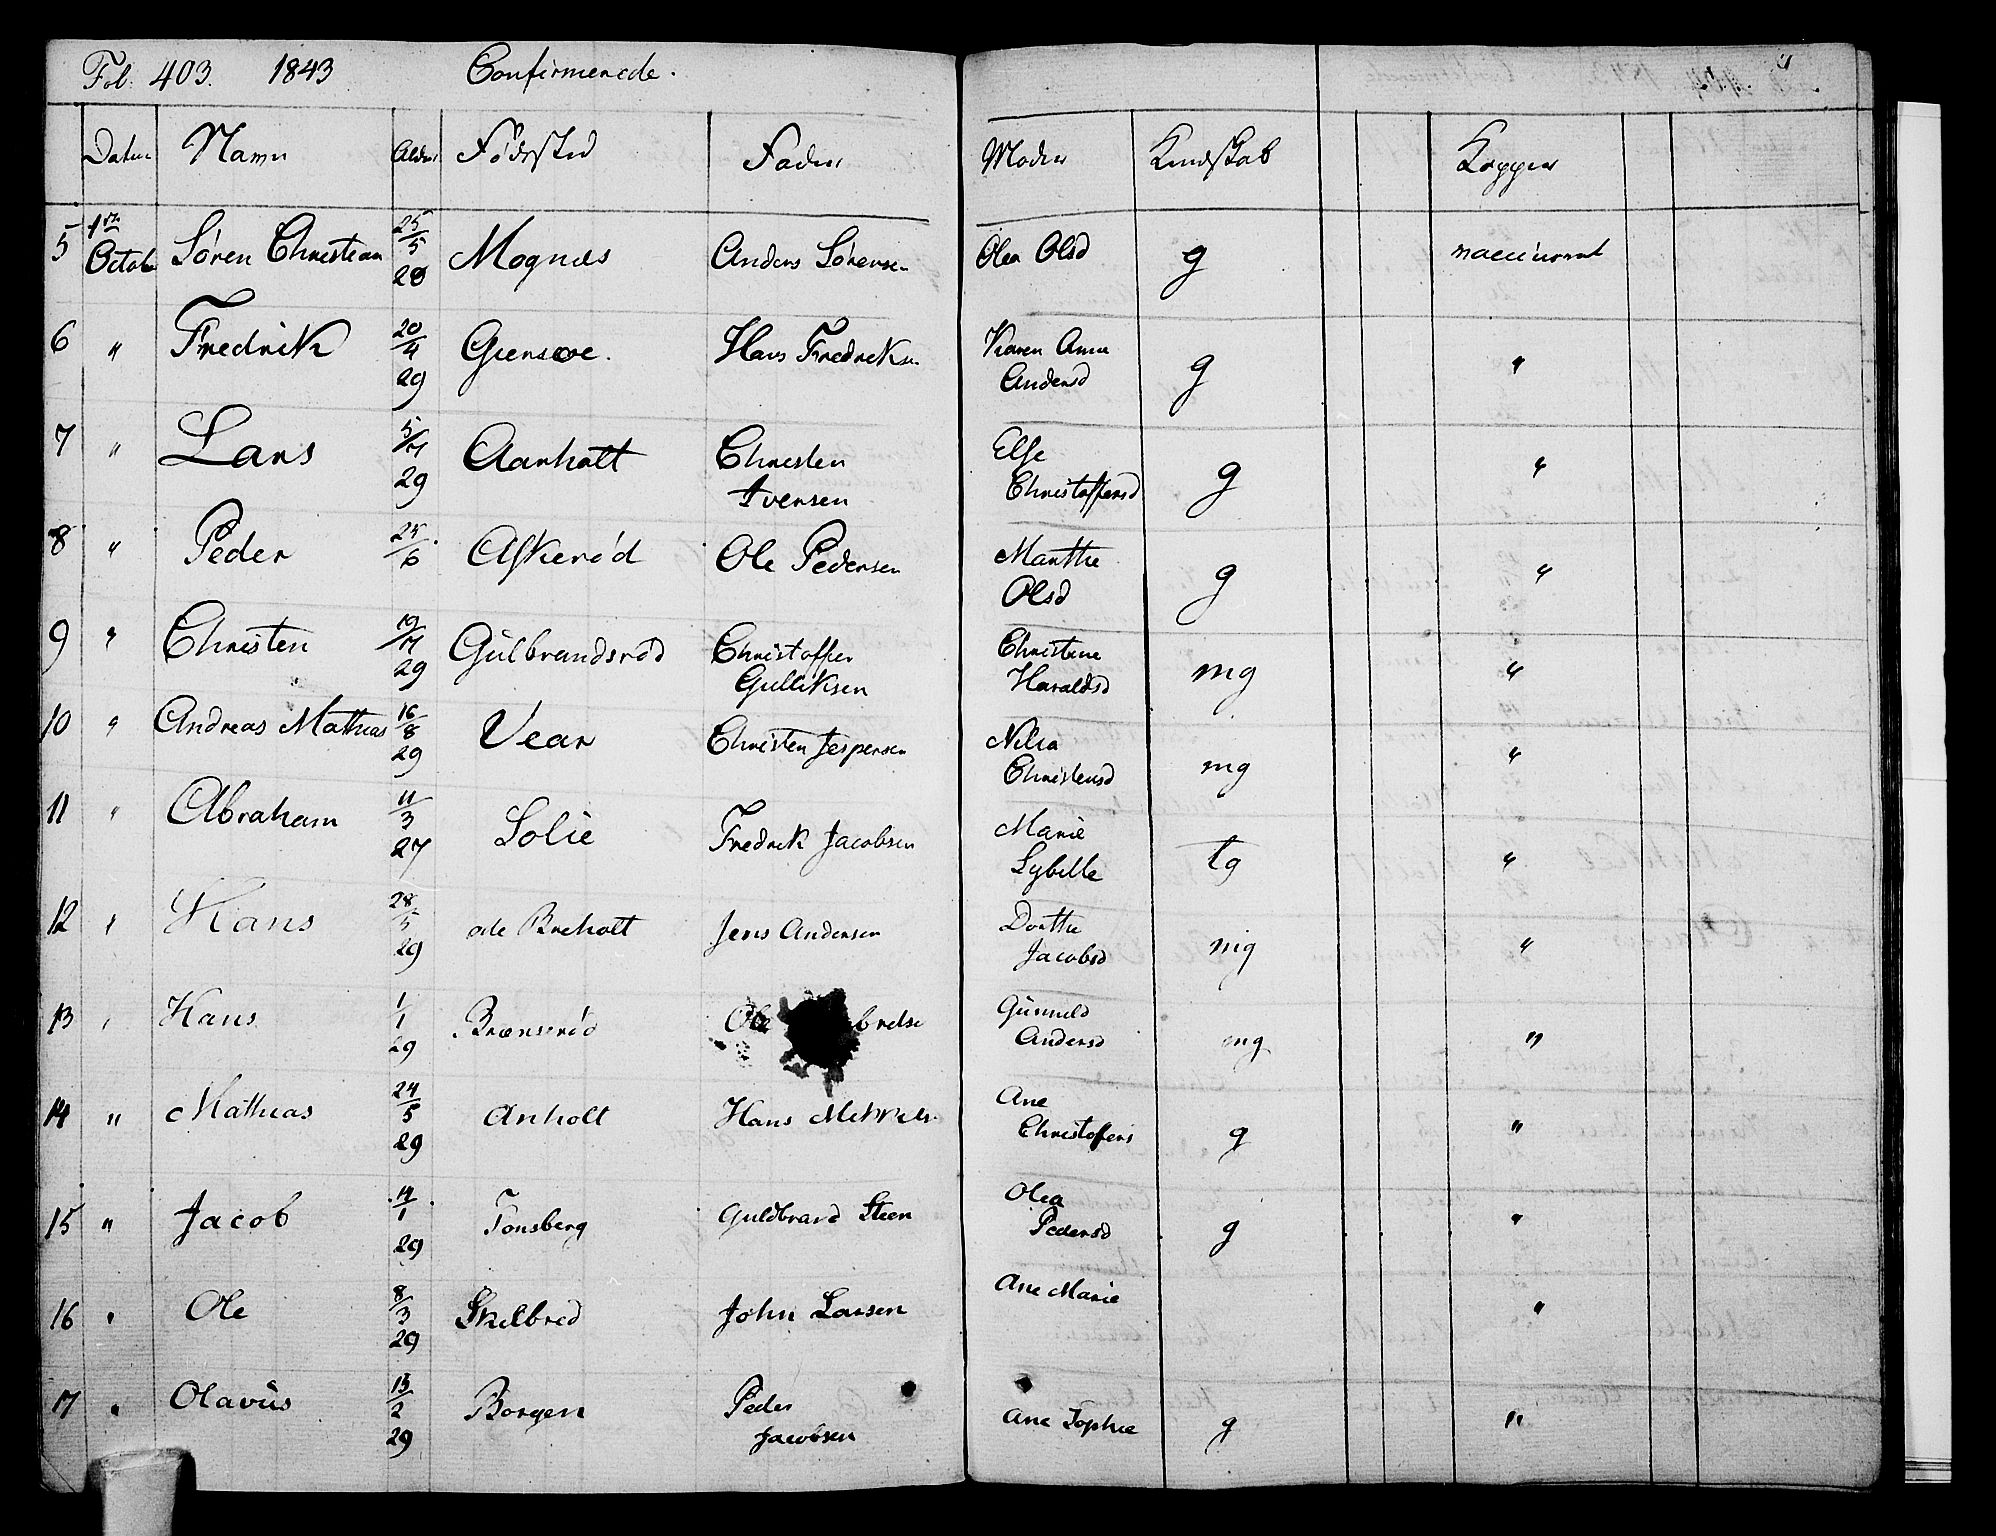 Fol. 403. 1843 Confirmerede.
Datum Navn Alder Fødested Fader Moder Kundskab Kopper
5 1ste Octob Søren Christian 25/5 28 Mognæs Anders Sørensen Olea Olsd g vaccinerat
6 " Fredrik 20/4 29 Giersøe. Hans Fredriksn Karen Anne Andersd g "
7 " Lars 5/7 29 Aarholt Christen Iversen Else Christoffersd g "
8 " Peder 24/6 Askerød Ole Pedersen Marthe Olsd g "
9 " Christen 19/7 29 Gülbrandsrød Christoffer Gulliksen Christine Haraldsd mg "
10 " Andreas Mathias 16/8 29 Vear Christen Jespersen Nilia Christensd mg "
11 " Abraham 11/3 27 Solie Fredrik Jacobsen Marie Sybille tg "
12 " Hans 28/5 29 ode Breholt Jens Andersen Dorthe Jacobsd mg "
13 " Hans 1/1 29 Brænserød Ole Günnild Andersd mg "
14 " Mathias 24/5 29 Anholt Hans Ane Christoffers g "
15 " Jacob 14/1 29 Tønsberg Guldbrand Steen Olea Pedersd g "
16 " Ole 8/3 29 Skelbred John Larsen Ane Marie "
17 " Olavüs 13/2 29 Borgen Peder Jacobsen Ane Sophie g "